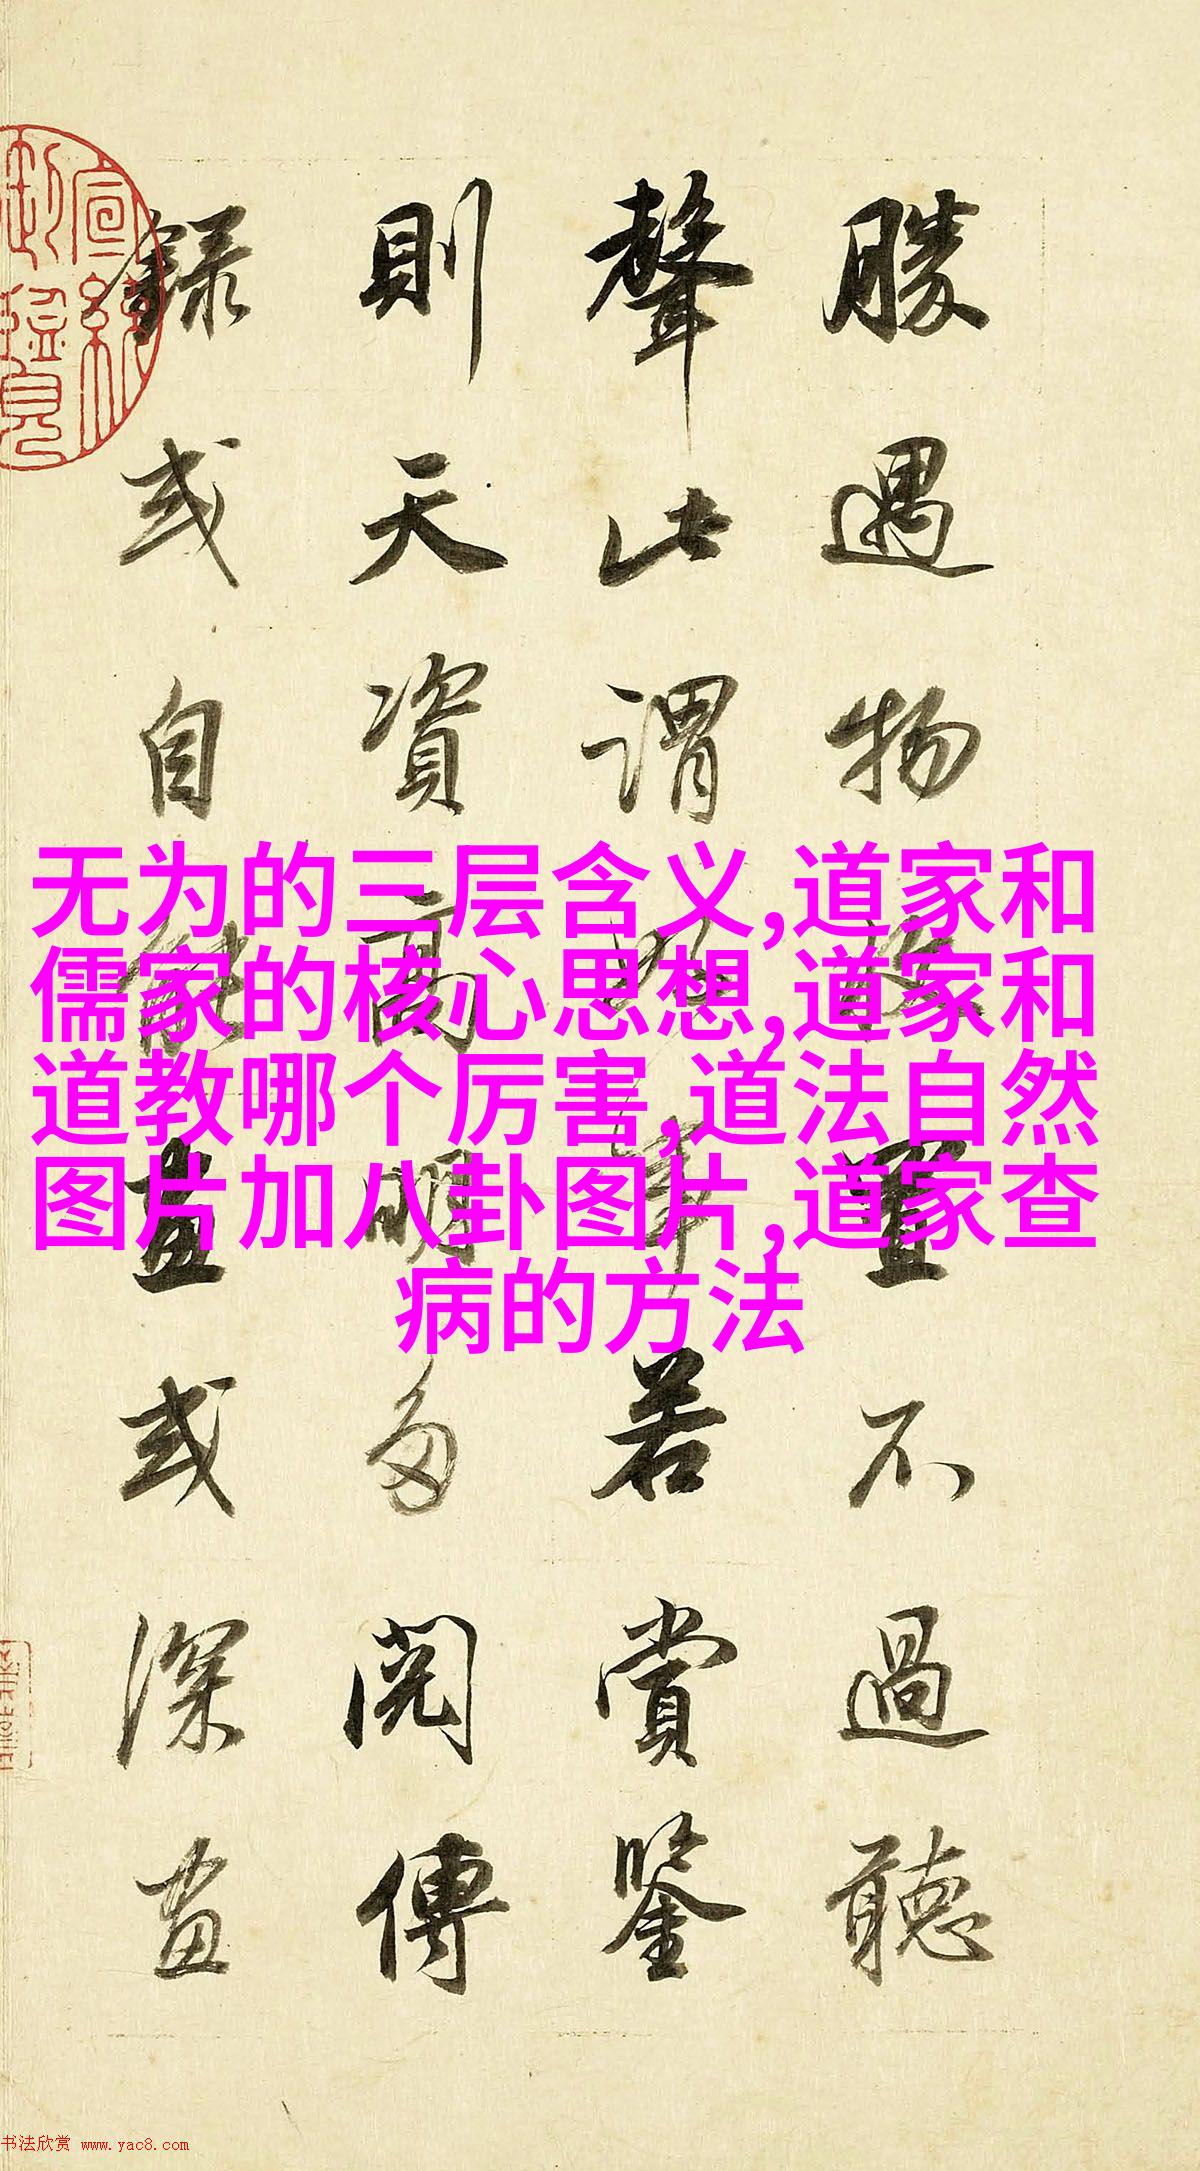 勝遇物收置不過聽
聲此謂好事若賞鑒
則天資高明多閱傳
錄或自能畫或深畫
宣統
御覽
无为的三层含义,道家和
儒家的核心思想,道家和
道教哪个厉害,道法自然
图片加八卦图片,道家查
病的方法
书法欣赏 www.yac8.com